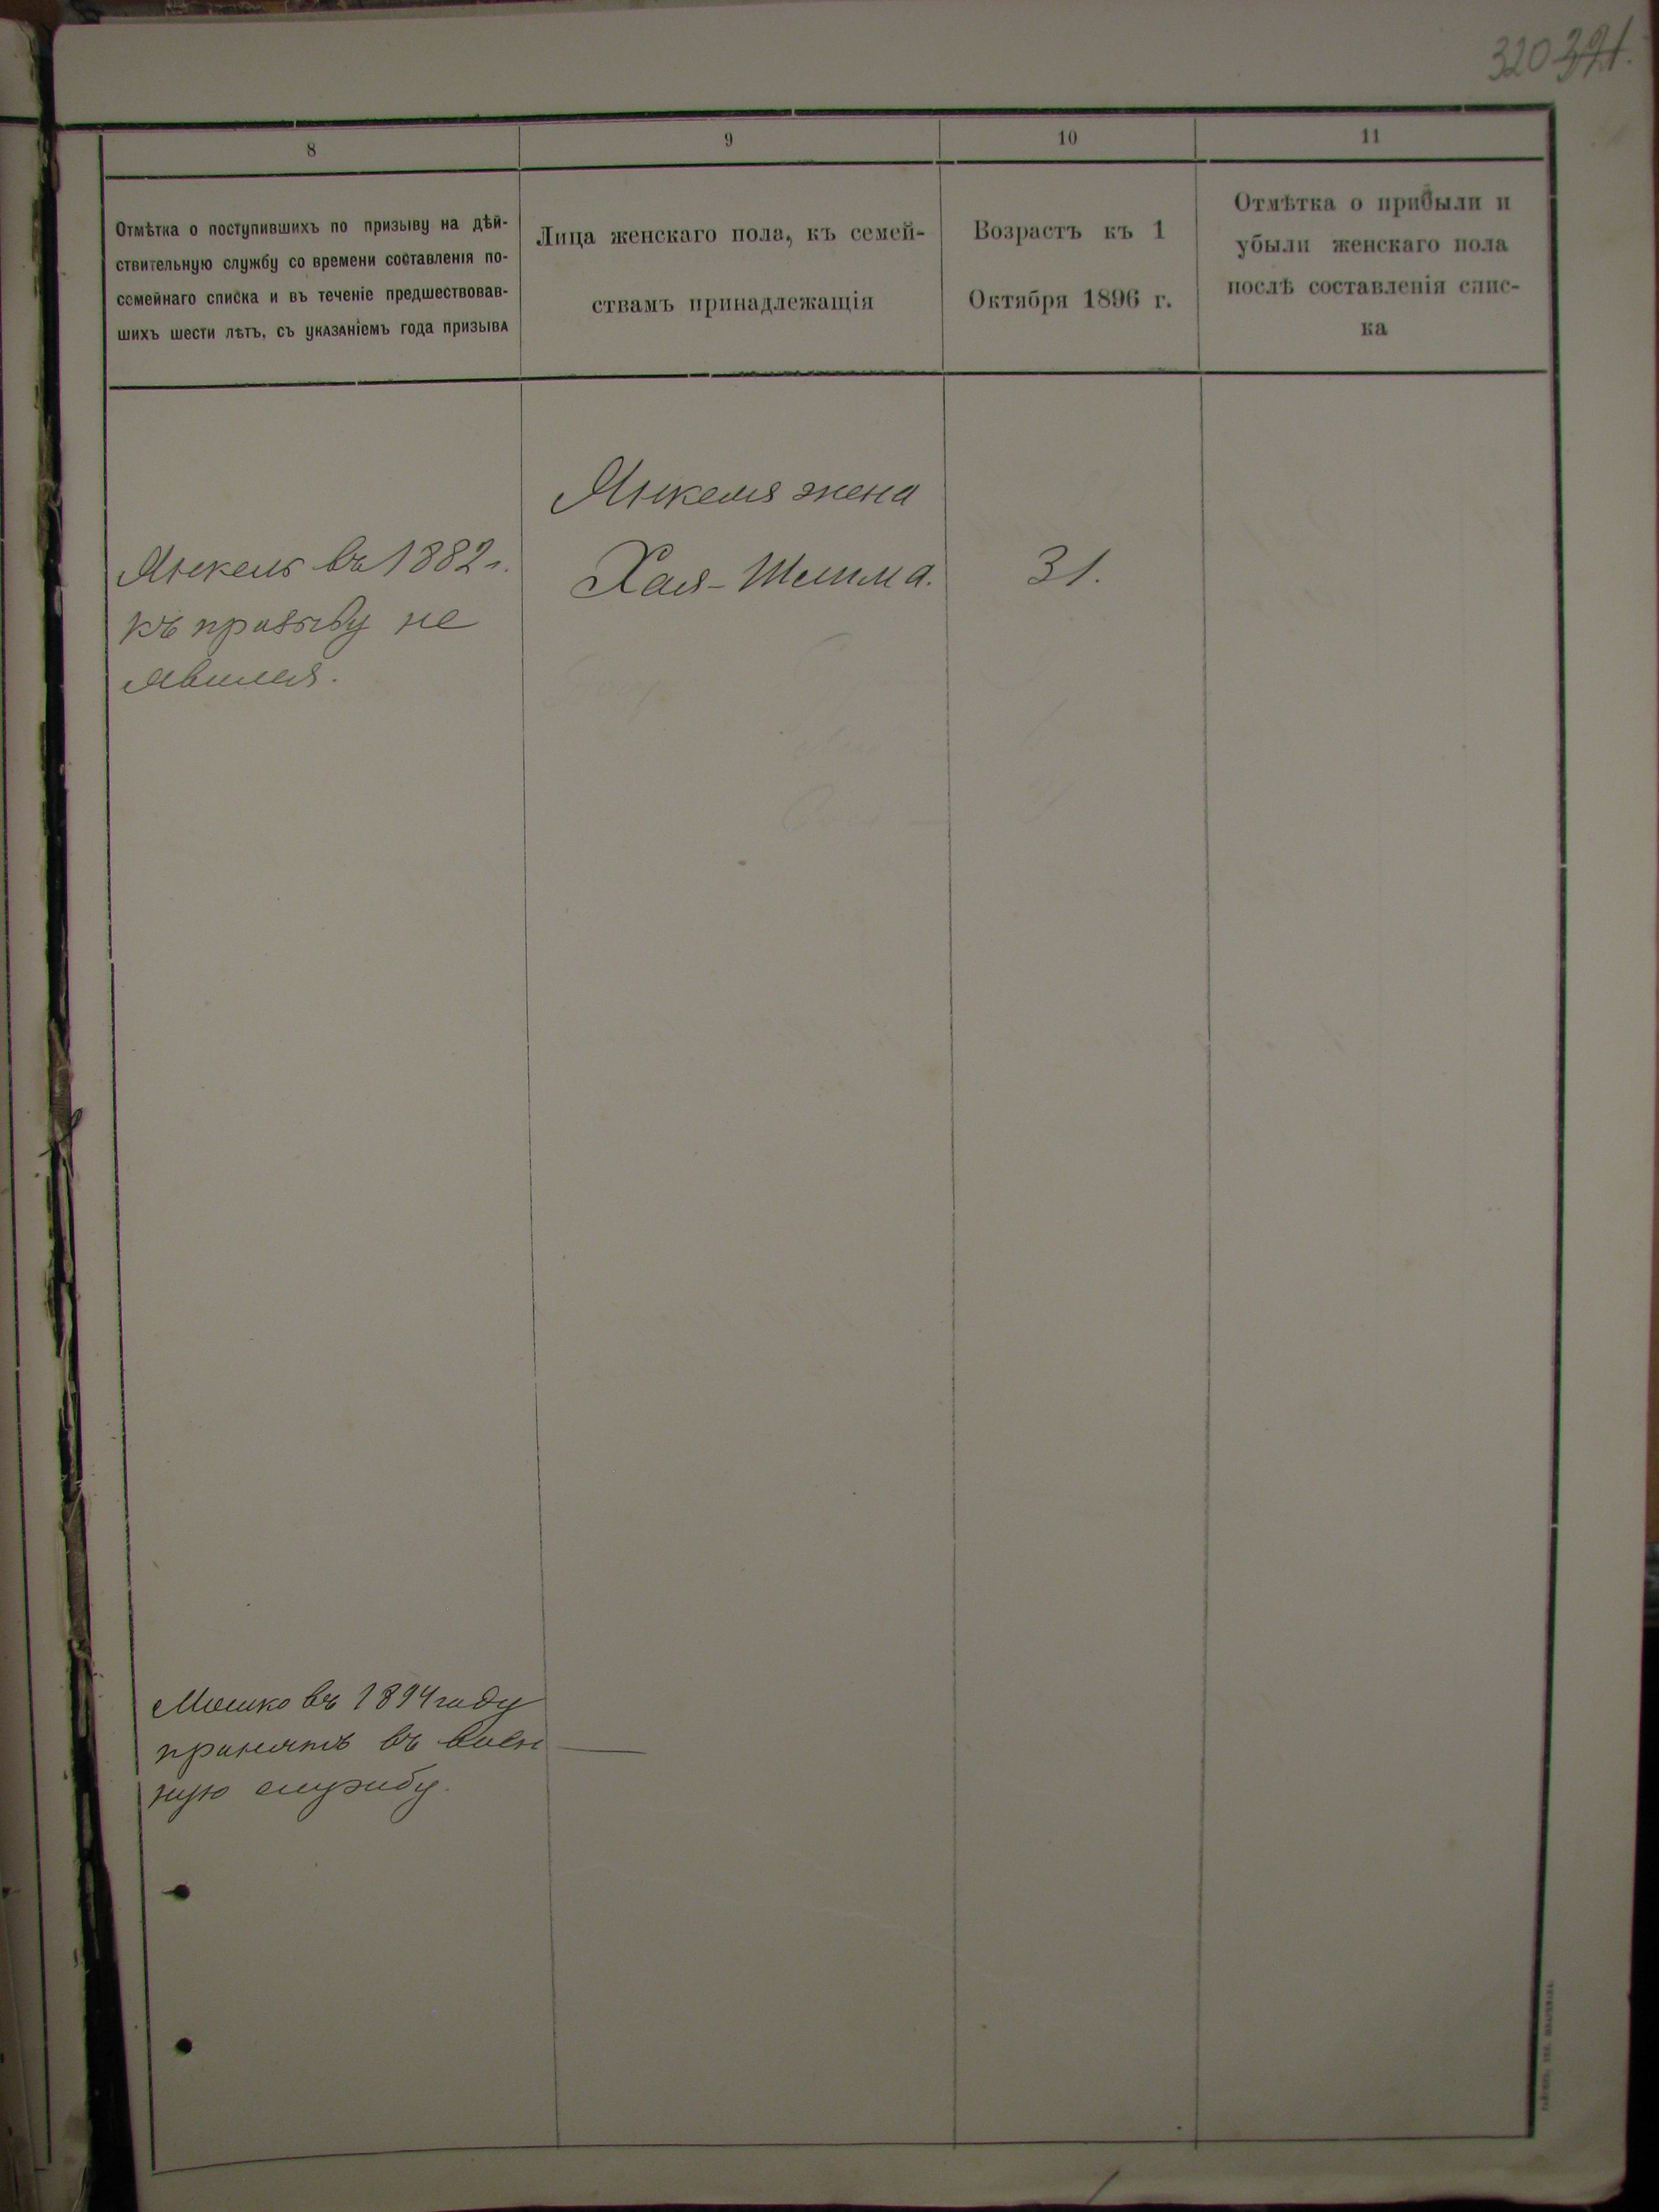 320 321.
8
9
10
11
Отмѣтка о поступившихъ по призыву на дѣй-
ствительную службу со времени составленія по-
семейнаго списка и въ теченіе предшествовав-
шихъ шести лѣтъ, съ указаніемъ года призыва
Лица женскаго пола, къ семей-
ствамъ принадлежащія
Возрастъ къ 1
Октября 1896 г.
Отмѣтка о прибыли и
убыли женскаго пола
послѣ составленія спис-
ка
Янкель въ 1882 г.
къ призыву не
явился.
Янкеля жена
Хая-Шлима.
31.
Мошко въ 1894 году
принятъ въ воен
ную службу.